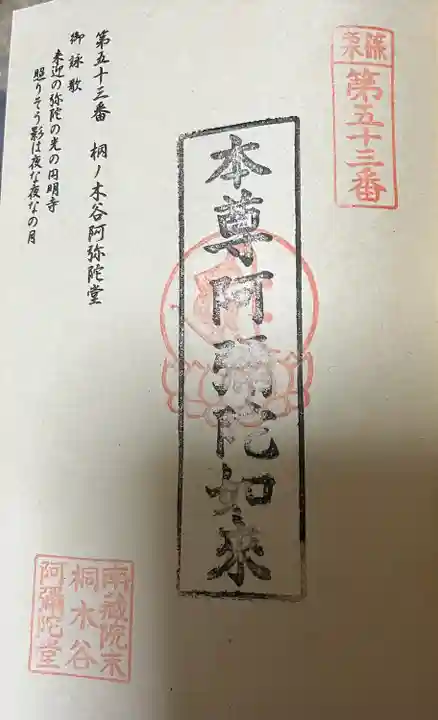 篠栗
第五十三番
本尊阿彌陀如来
第五十三番 桐ノ木谷阿弥陀堂
御詠歌
来迎の弥陀の光の円明寺
照りそう影は夜な夜なの月
南蔵院末
桐木谷
阿彌陀堂